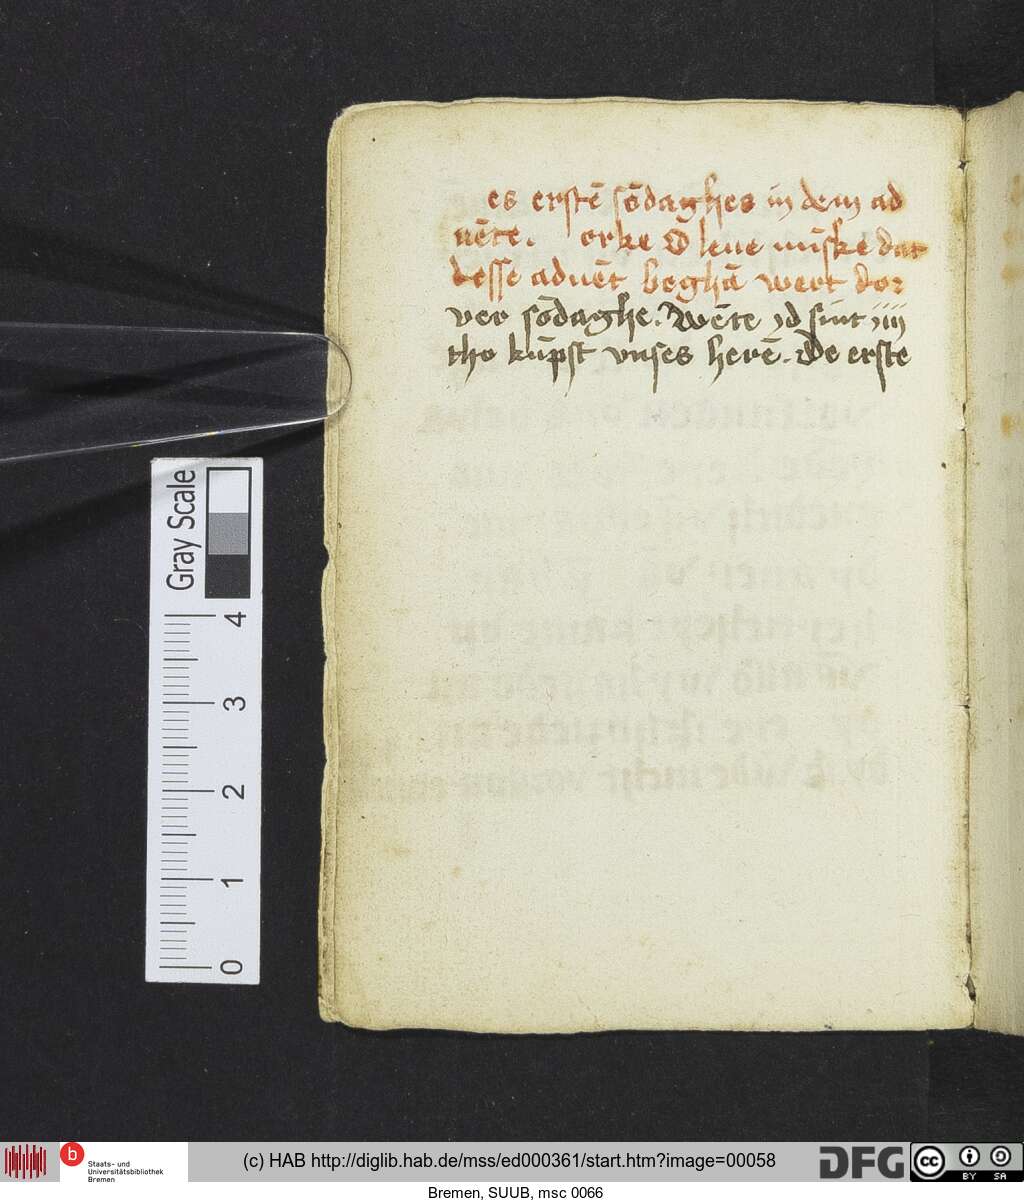 es erstē sōdaghes in dem ad
uēte. orke O leue mīske dat
desse aduēt beghā wert dor
ver sōdaghe. Wēte yd sint iiii
tho kūpst vnses herē. De erste
Gray Scale
4
3
2
1
0
b
Staats- und
Universitätsbibliothek
Bremen
(c) HAB http://diglib.hab.de/mss/ed000361/start.htm?image=00058
DFG
cc BY SA
Bremen, SUUB, msc 0066